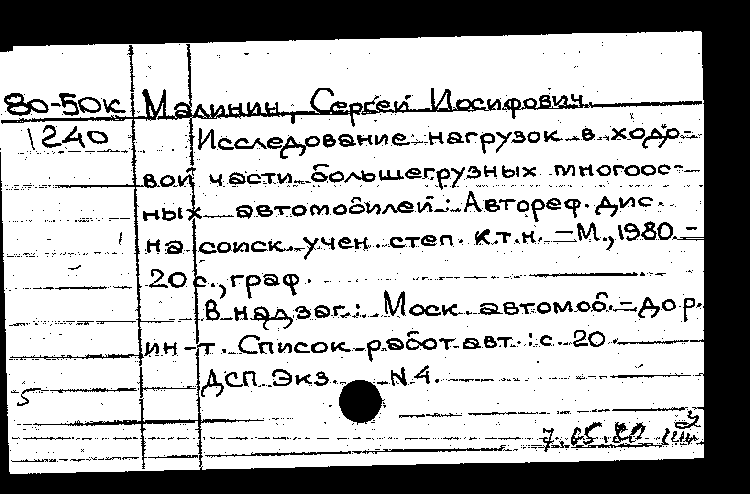 80-50к Малинин, Сергей Иосифович.
1240 Исследование нагрузок в ходо-
вой части большегрузных многоос-
ных автомобилей: Автореф. дис.
на соиск. учен. степ. к.т.н. - М., 1980 -
20 с., граф.
В надзаг.: Моск. автомоб.-дор.
ин-т. Список работ авт.: с. 20.
ДСП Экз. N 4.
5
7.05.80